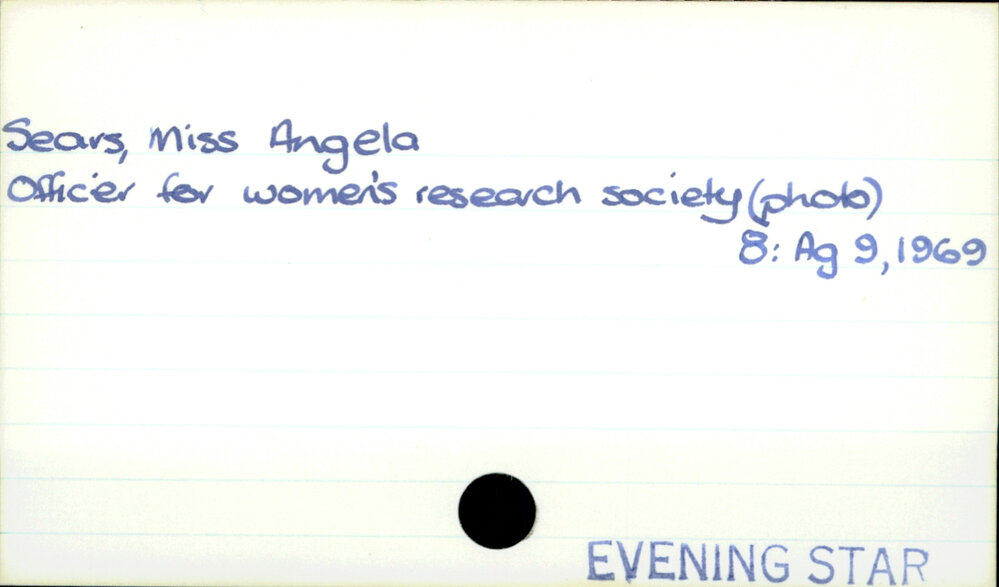 Sears, Miss Angela
Officer for women's research society (photo)
8: Ag 9, 1969
EVENING STAR